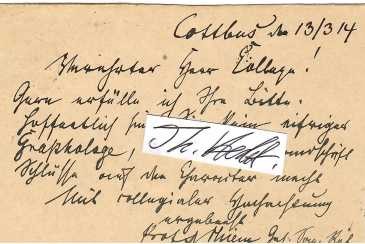 Cottbus den 13/3 14
Verehrter Herr College!
Gern erfülle ich Ihre Bitte.
Hoffentlich sind Sie kein eifriger
Graphologe, Unterschrift
Schlüsse auf den Charakter macht
Mit collegialer Hochachtung
ergebenst